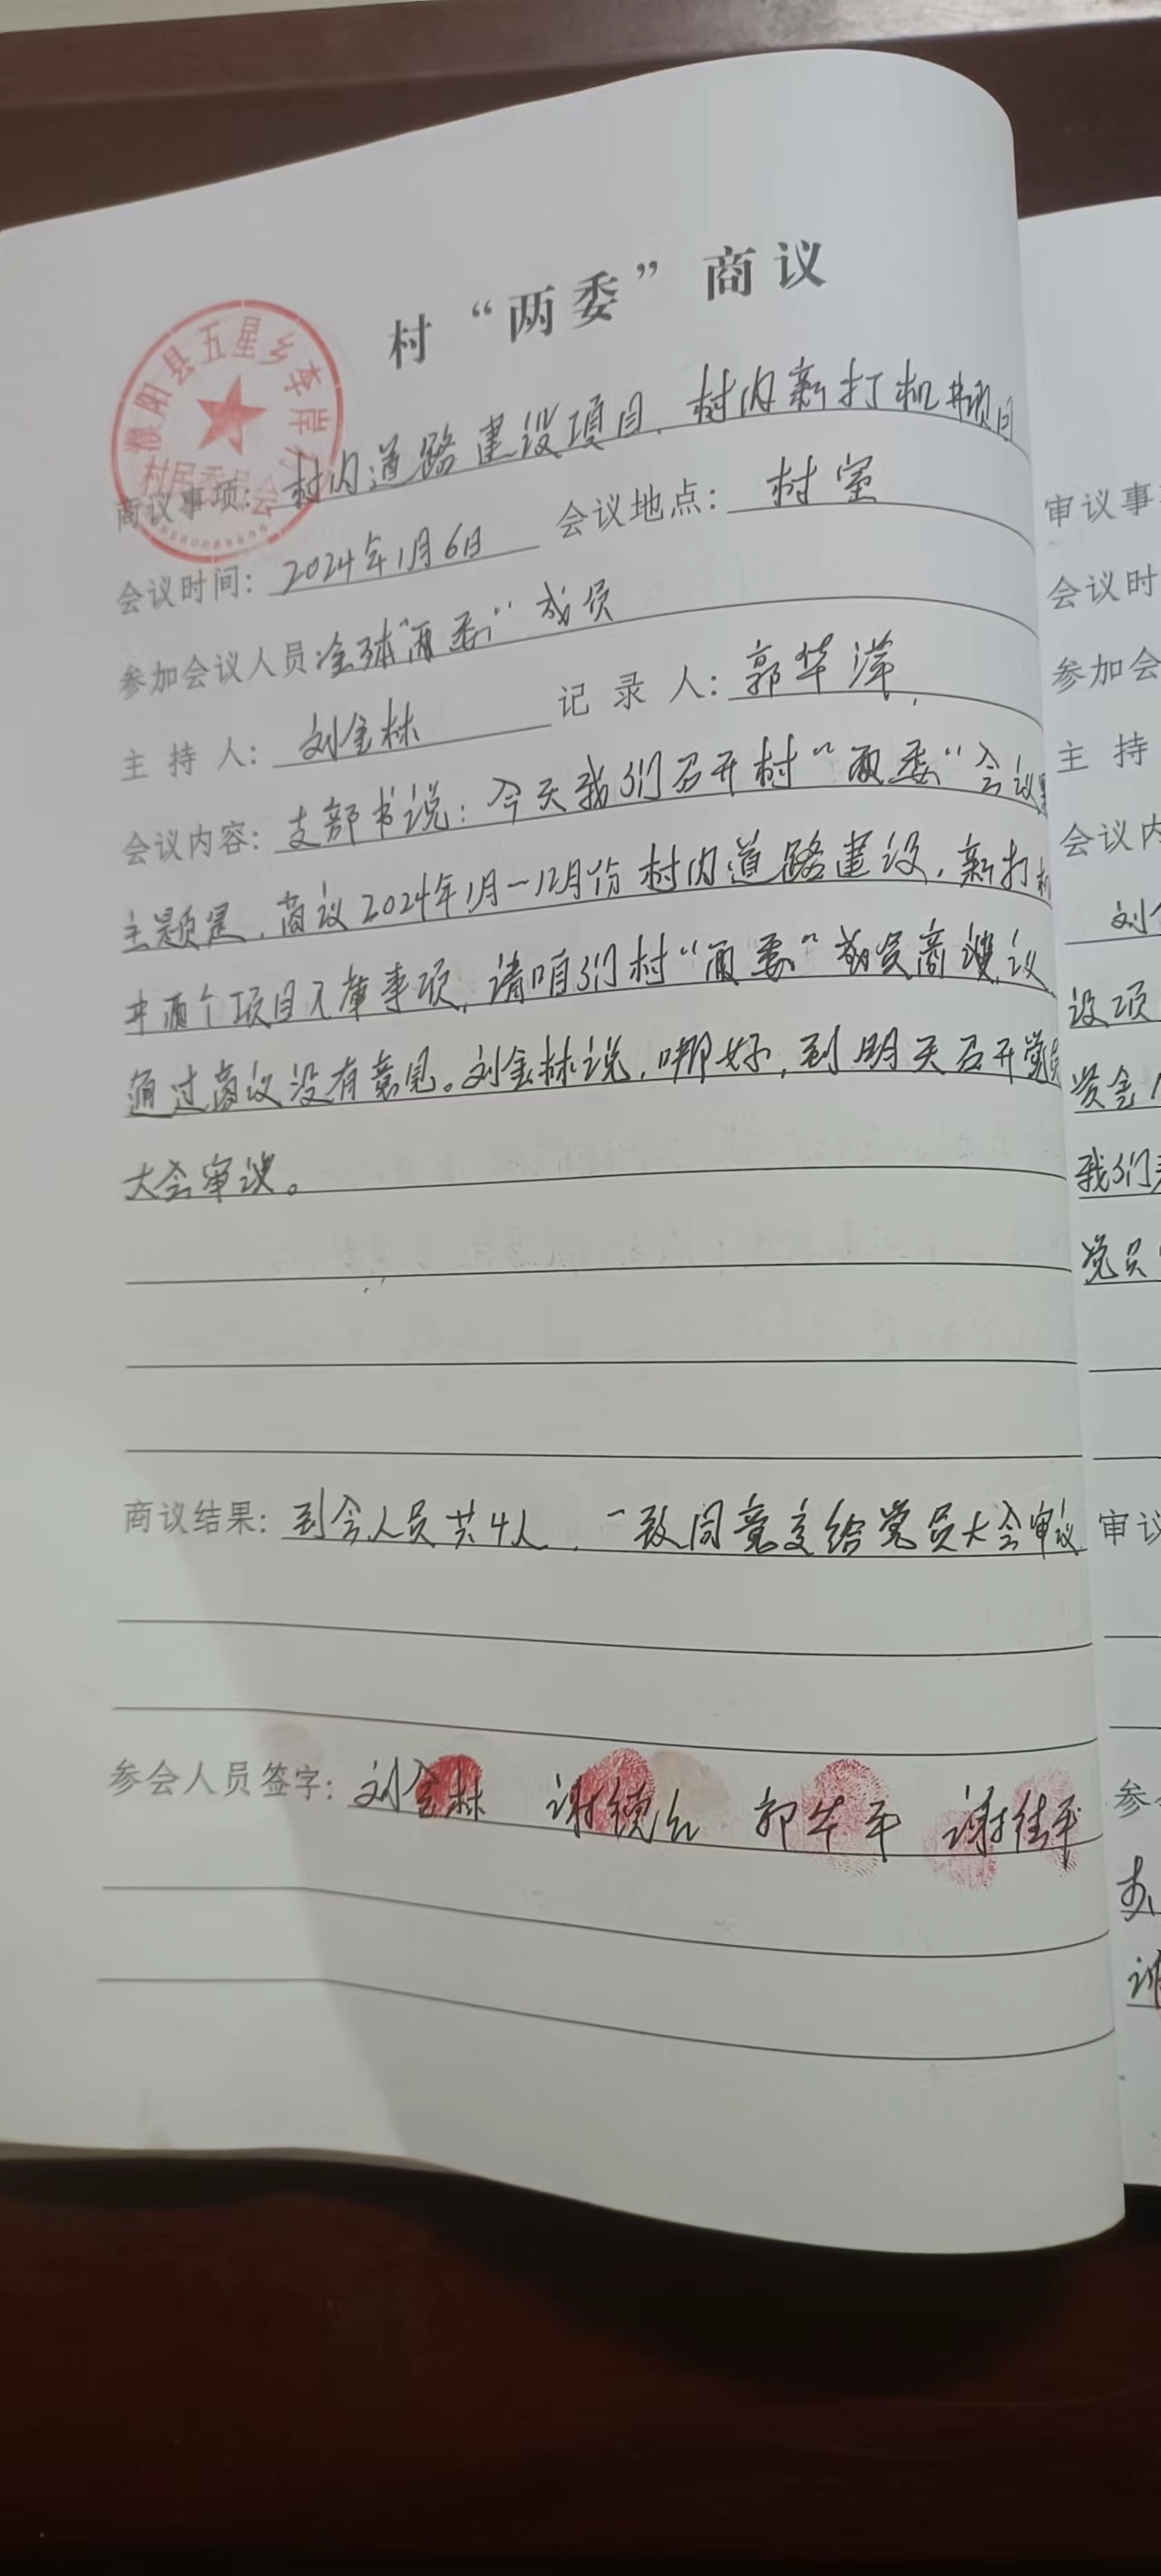 村“两委”商议
濮阳县五星乡李岸
村民委员会
商议事项: 村内道路建设项目.村内新打机井项目
会议时间: 2024年1月6日 会议地点: 村室
参加会议人员: 全体“两委”成员
主持人: 刘金林 记录人: 郭华
会议内容: 支部书说: 今天我们召开村“两委”会议
主题是.商议2024年1月—12月份村内道路建设.新打机
井两个项目入库事项,请咱们村“两委”成员商议
通过商议没有意见。刘金林说,哪好,到明天召开党员
大会审议。
商议结果: 到会人员共4人.一致同意交给党员大会审议
参会人员签字: 刘金林 谢德 郭华平 谢佳平
审议事
会议时
参加会
主持
会议内
刘
设项
资金
我们
党员
审议
参